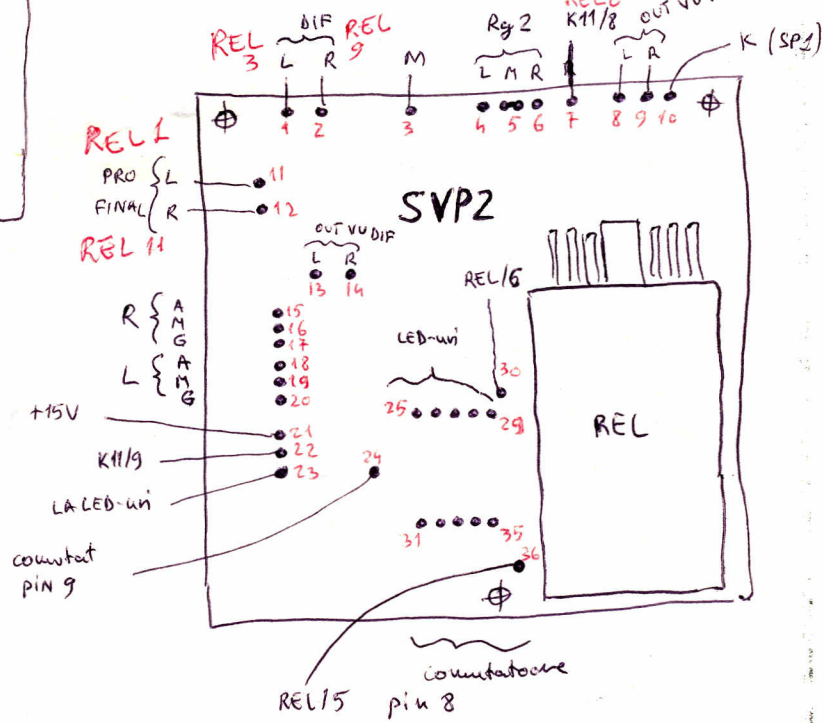 DIF
REL 3
REL 9
L R
M
Rg 2
L M R
K11/8
OUT VU
L R
K (SP1)
1 2 3 4 5 6 7 8 9 10
REL 1
PRO
FINAL
L
R
11
12
REL 11
SVP2
OUT VU DIF
L R
13 14
REL/6
R
A
M
G
15
16
17
L
A
M
G
18
19
20
LED-uri
30
25
29
REL
+15V
21
K11/9
22
LA LED-uri
23
24
comutat
PIN 9
31
35
36
comutatoare
REL/5
pin 8